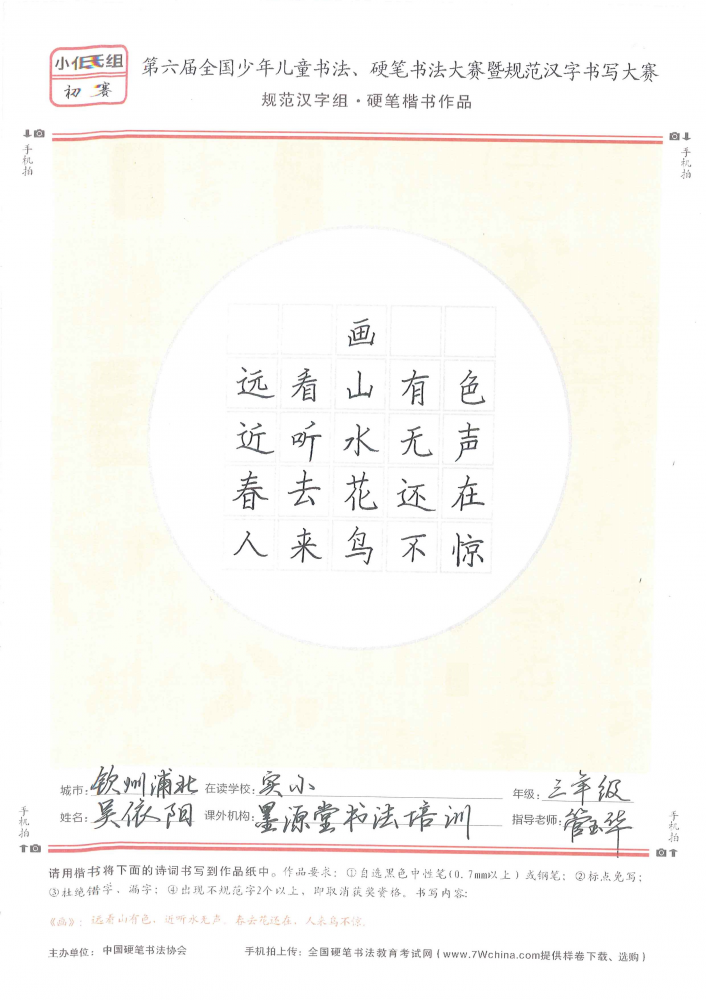 小低组
初赛
第六届全国少年儿童书法、硬笔书法大赛暨规范汉字书写大赛
规范汉字组·硬笔楷书作品
手机拍
手机拍
画
远看山有色
近听水无声
春去花还在
人来鸟不惊
城市：钦州浦北 在读学校：实小 年级：三年级
姓名：吴依阳 课外机构：墨源堂书法培训 指导老师：管玉华
手机拍
手机拍
请用楷书将下面的诗词书写到作品纸中。作品要求：①自选黑色中性笔(0.7mm以上)或钢笔；②标点免写；
③杜绝错字、漏字；④出现不规范字2个以上，即取消获奖资格。书写内容：
《画》：远看山有色，近听水无声。春去花还在，人来鸟不惊。
主办单位：中国硬笔书法协会 手机拍上传：全国硬笔书法教育考试网（www.7Wchina.com提供样卷下载、选购）